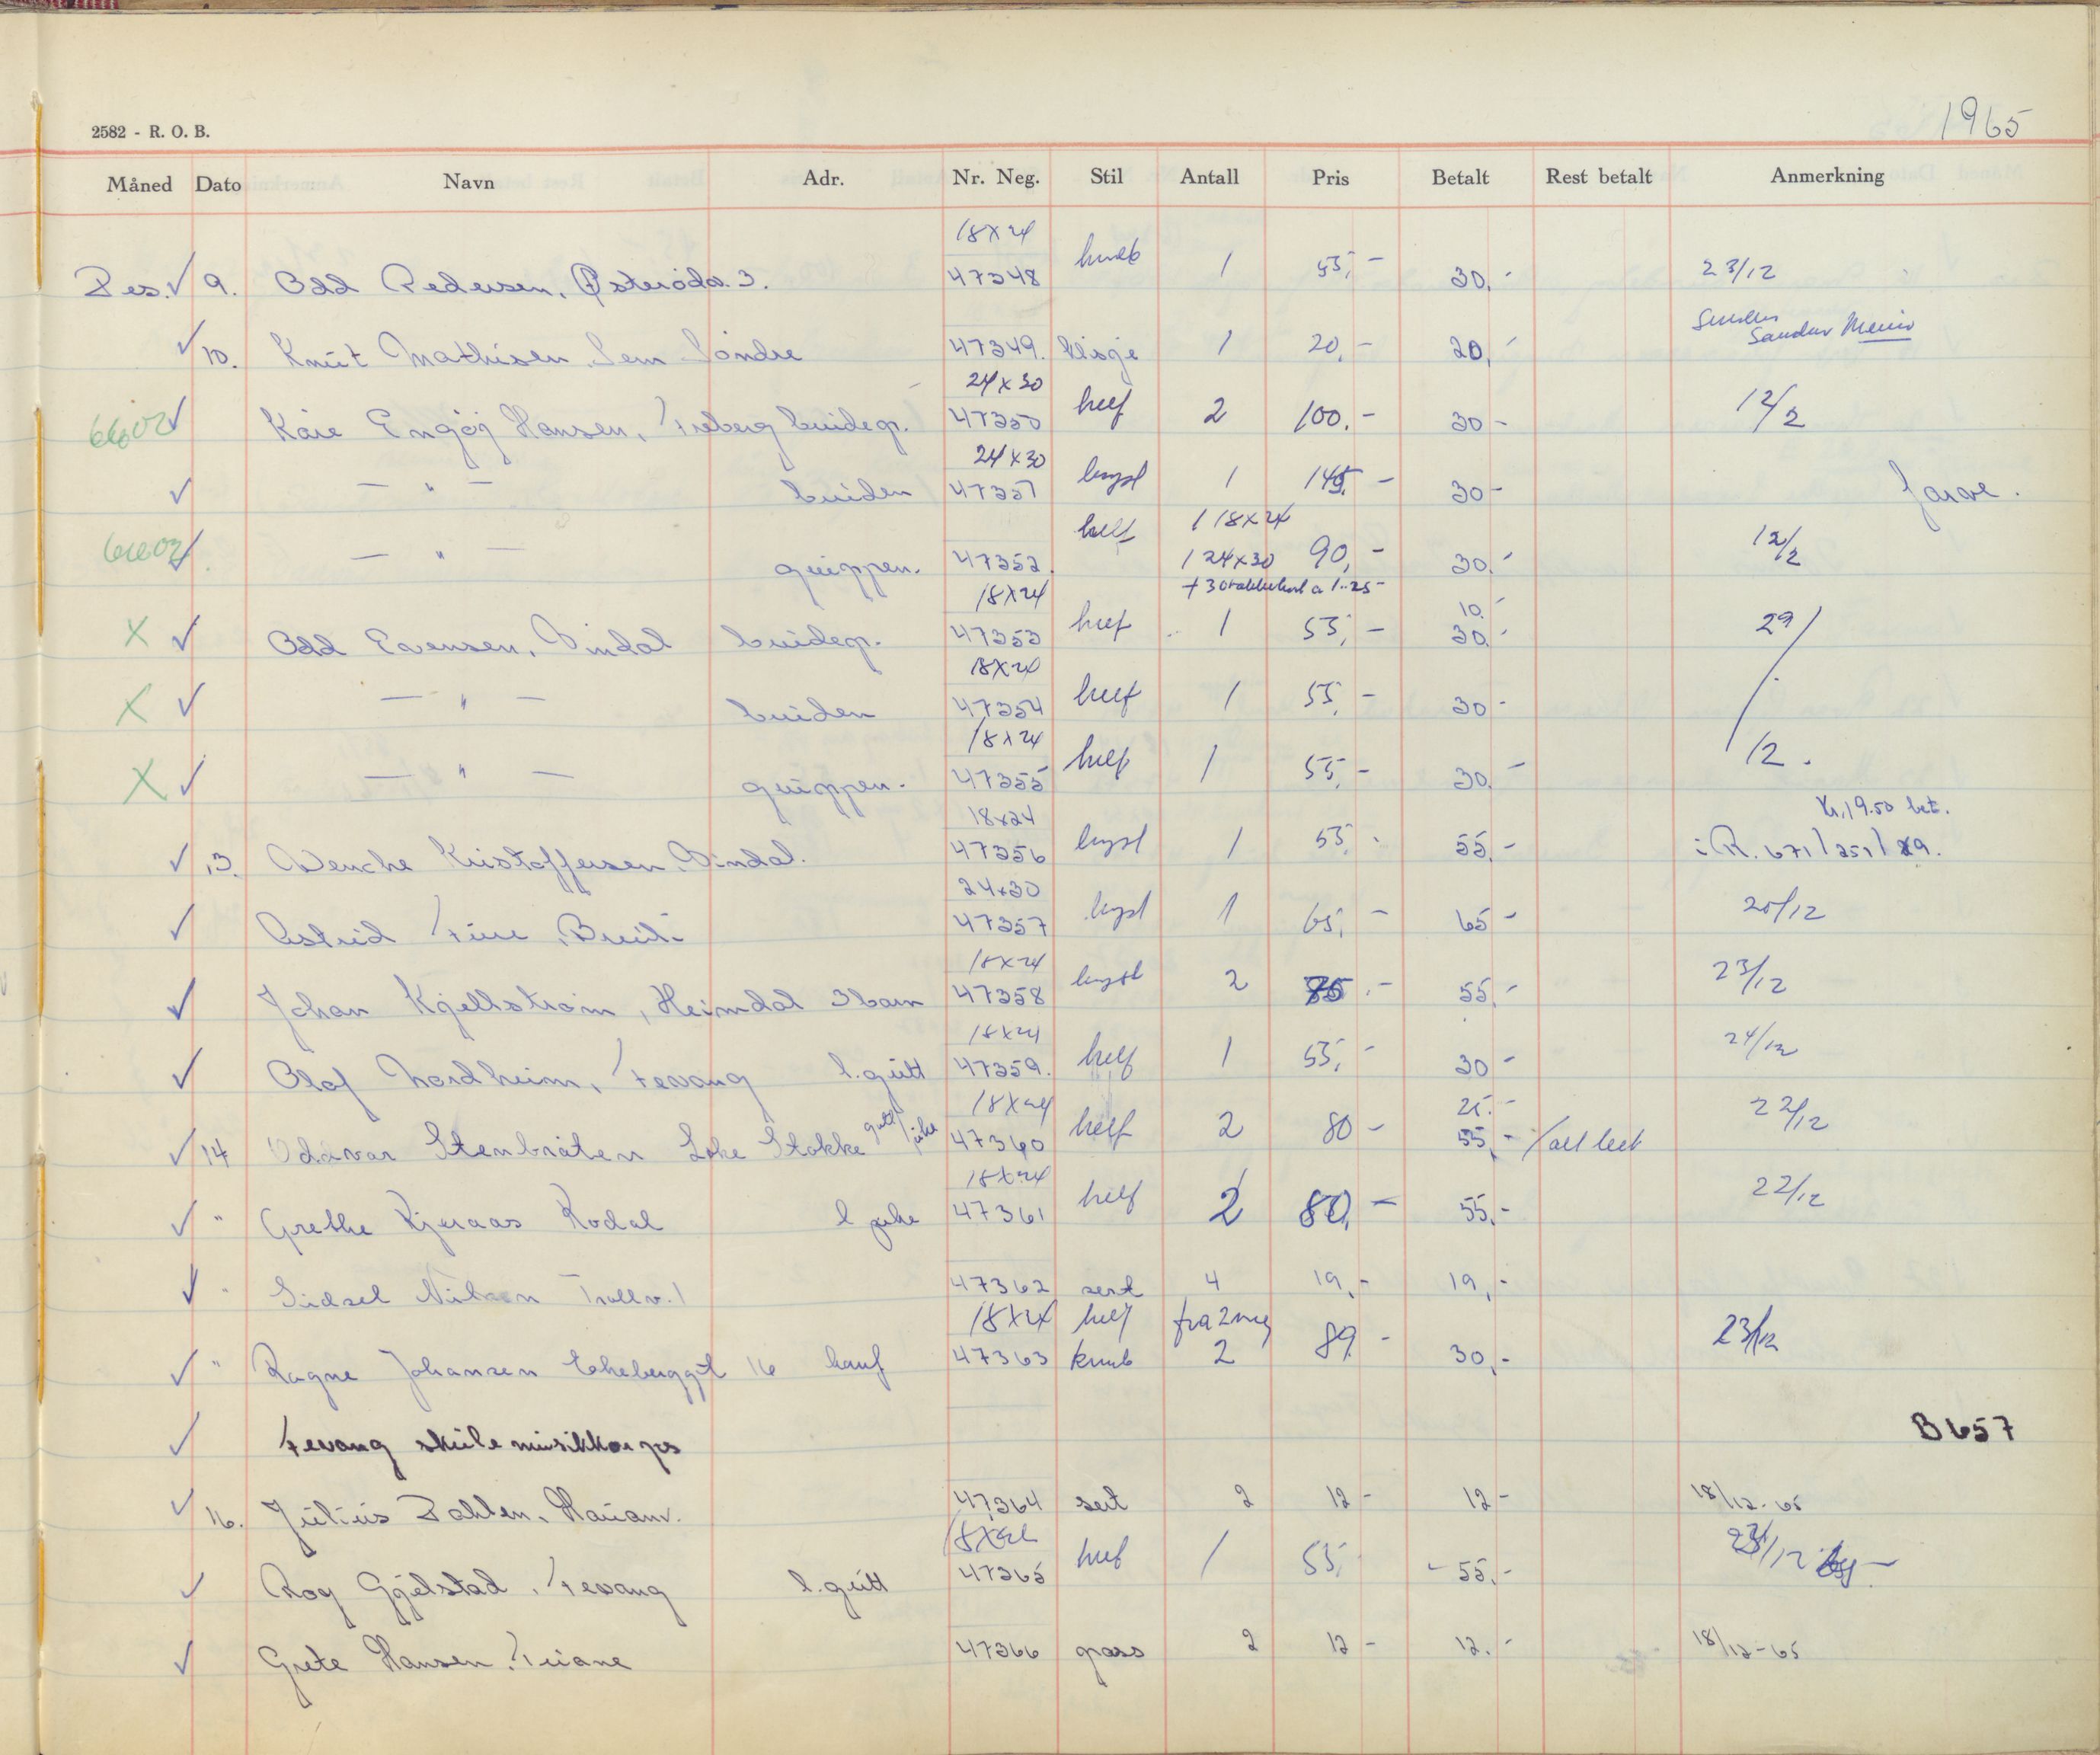 1965
2582 - R. O. B.
Måned Dato Navn Adr. Nr. Neg. Stil Antall Pris Betalt Rest betalt Anmerkning
18x24
Des. ✓ 9. Odd Pedersen, Østerødv. 3. 47348 1 55,- 30,- 23/12
Sandar
✓ 10. Knut Mathisen, Sem Søndre 47349. klisje 1 20,- 20,-
24x30
✓ Kåre Engøy Hansen, brudep. 47350 helf 2 100.- 30- 12/2
24x30
✓ — " — bruden 47351 1 145,- 30- farve.
1 18x24
✓ — " — gruppen. 47352. helf 1 24x30 90,- 30.- 12/2
18x24 10.-
X ✓ Odd Evensen, Vindal brudep. 47353 helf 1 55,- 30.- 29/
18x24
X ✓ — " — bruden 47354 helf 1 55,- 30-
18x24
X ✓ — " — gruppen. 47355 helf 1 55,- 30.- 12.
18x24 Kr. 19.50 bet.
✓ 13. Wenche Kristoffersen, Vindal. 47356 1 55,- 55,- i R. 671/251/
24x30
✓ Astrid 47357 1 65,- 65- 20/12
18x24
✓ Johan Kjellstrøm, Heimdal 3 barn 47358 2 55,- 23/12
18x24
✓ Olaf Nordheim, Fevang l. gutt 47359. helf 1 55,- 30- 24/12
18x24 25.-
✓ 14 Oddvar Stenbråten Loke Stokke gutt/pike 47360 helf 2 80- 55,- 22/12
18x24
✓ " Grethe Kjeraas Rødal l pike 47361 helf 2 80,- 55,- 22/12
✓ " Sidsel Nilsen Trollv. 1 47362 sert 4 19,- 19,-
18x24 helf fra 2 neg
✓ " Ragne Johansen Ekeberggt 16 konf 47363 2 89- 30,- 23/12
✓ Fevang skulemusikkorps B657
✓ 16. Julius Dahlen, 47364 sert 2 12- 12- 18/12-65
18x24
✓ Roy Gjelstad, Fevang l. gutt 47365 helf 1 55,- - 55,- 23/12
✓ Grete Hansen, 47366 pass 2 12- 12.- 18/12-65